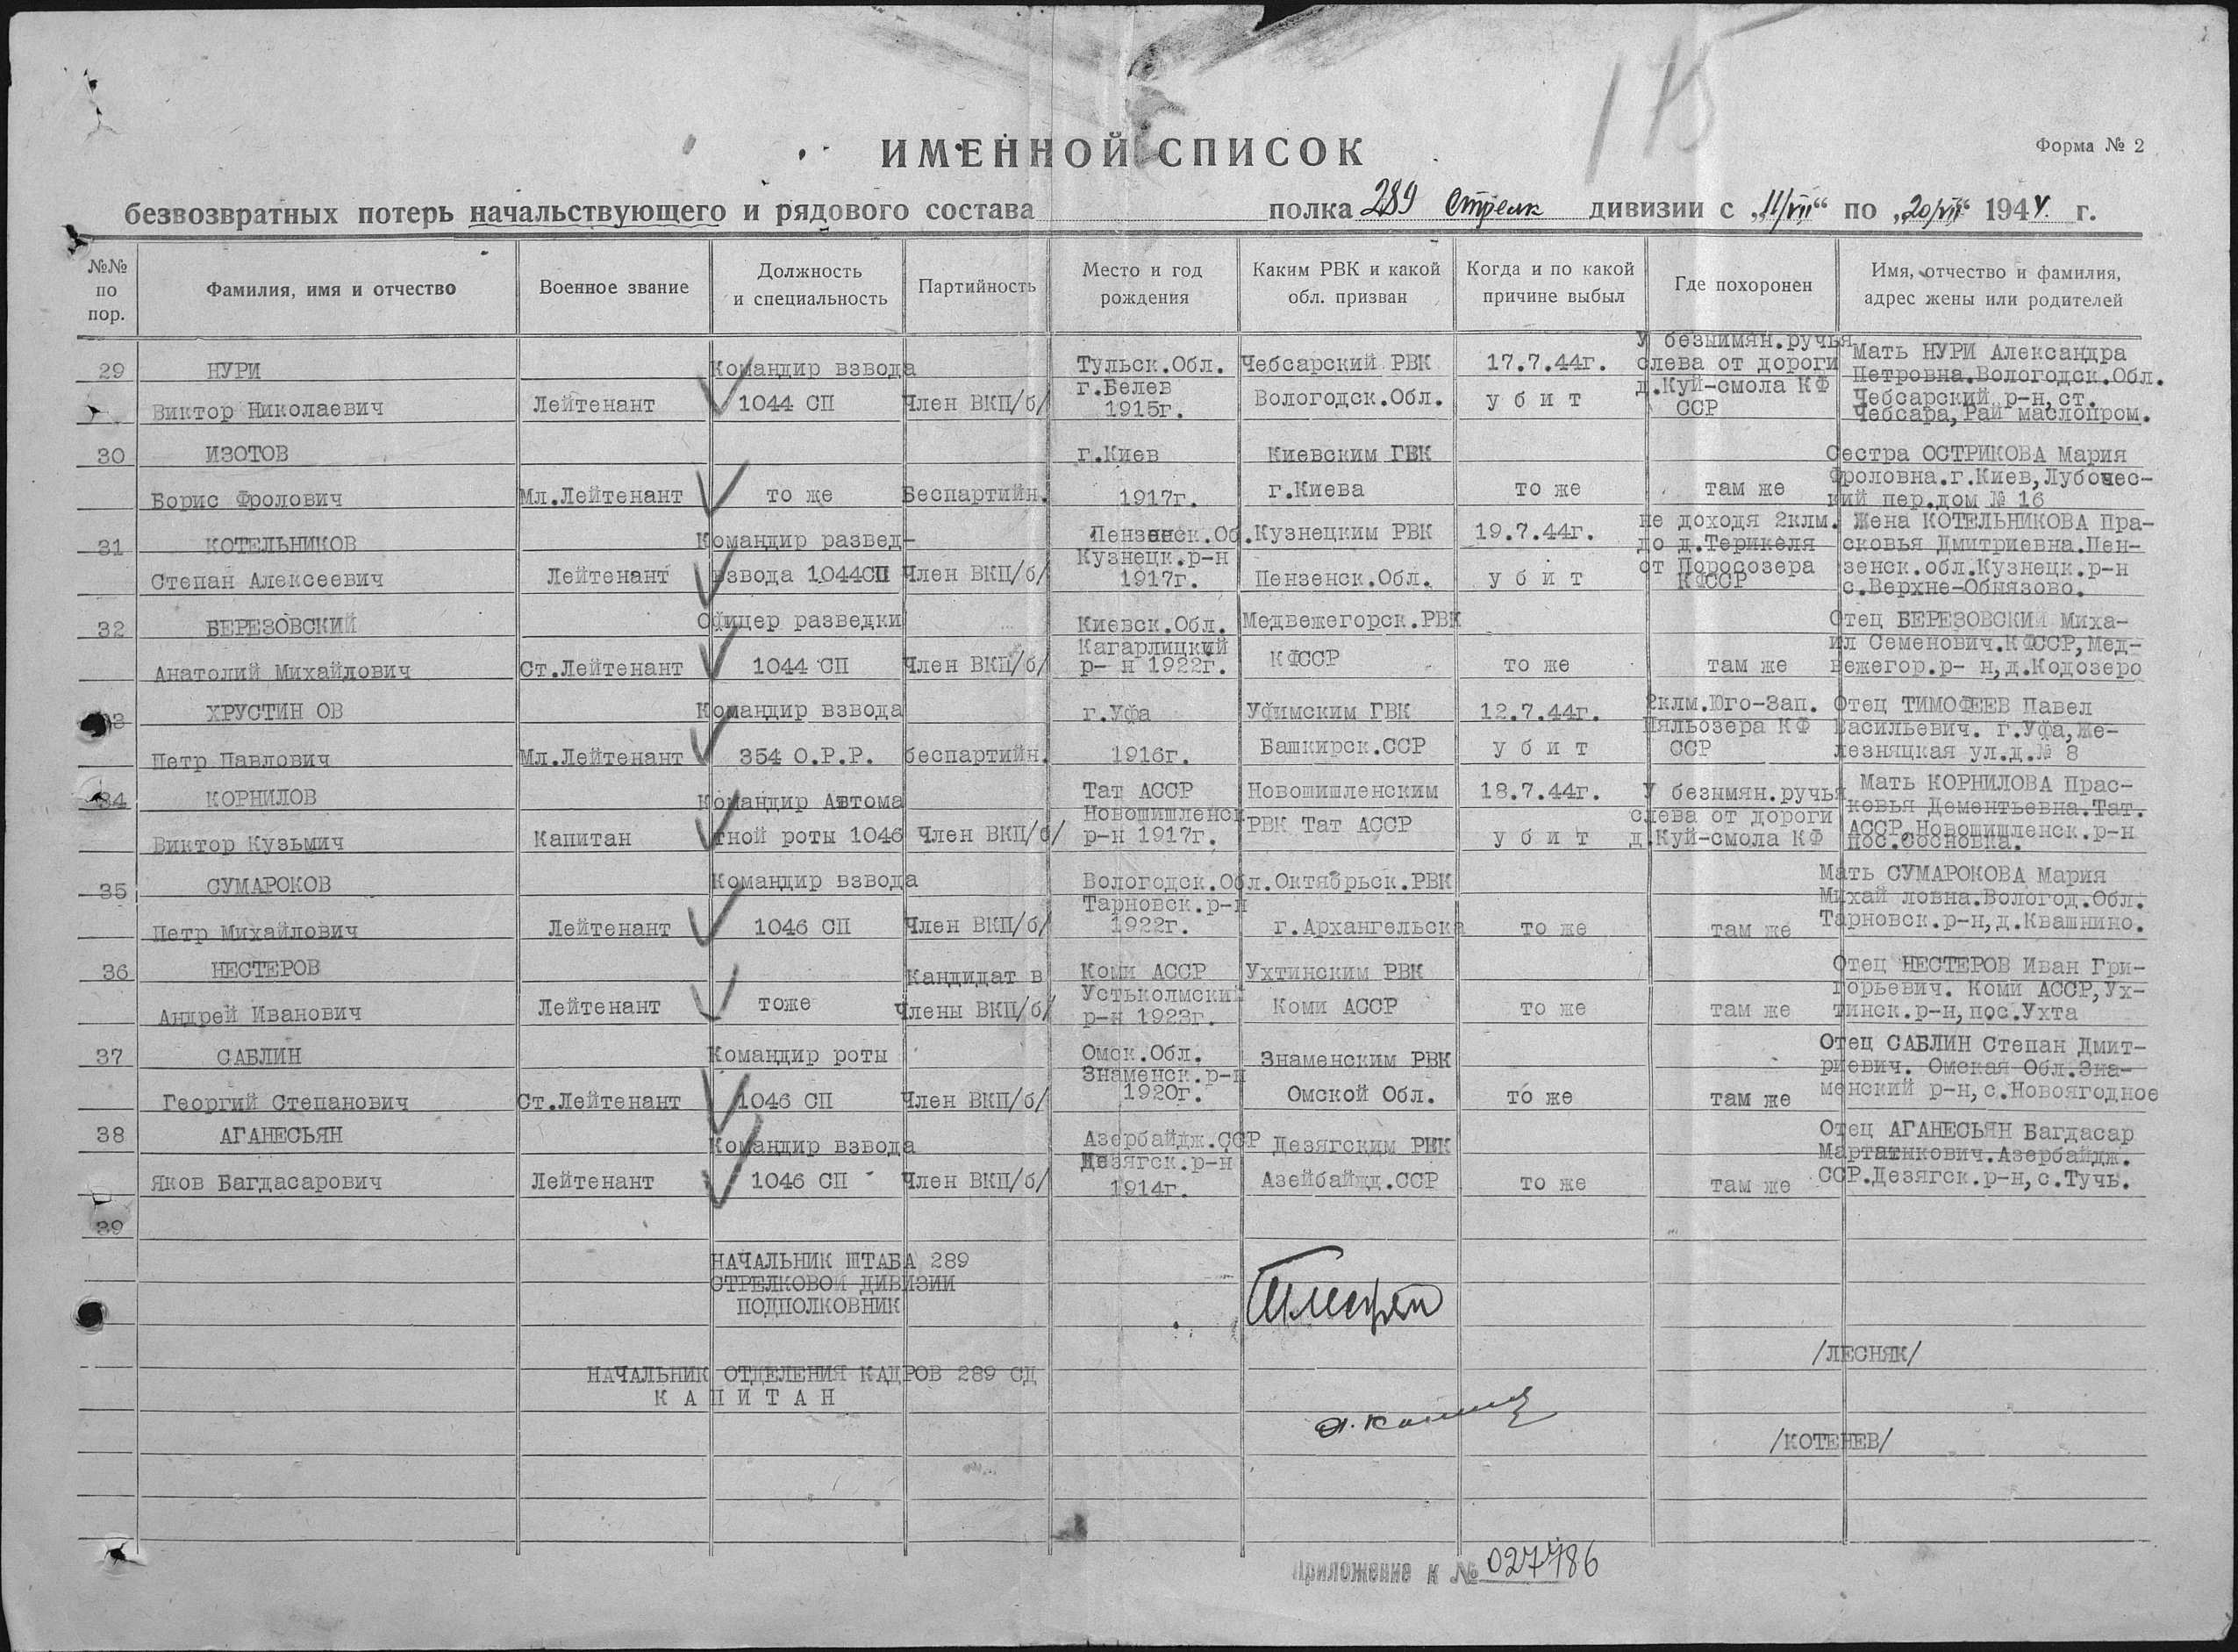 175
ИМЕННОЙ СПИСОК
Форма № 2
безвозвратных потерь начальствующего и рядового состава полка 289 Стрелк дивизии с „11/VII“ по „20/VII“ 1944 г.
№№ по пор.
Фамилия, имя и отчество
Военное звание
Должность и специальность
Партийность
Место и год рождения
Каким РВК и какой обл. призван
Когда и по какой причине выбыл
Где похоронен
Имя, отчество и фамилия, адрес жены или родителей
29
НУРИ
Виктор Николаевич
Лейтенант
Командир взвода
1044 СП
Член ВКП/б/
Тульск.Обл.
г.Белев
1915г.
Чебсарский РВК
Вологодск.Обл.
17.7.44г.
у б и т
У безымян.ручья
слева от дороги
д.Куй-смола КФ
ССР
Мать НУРИ Александра
Петровна.Вологодск.Обл.
Чебсарский р-н,ст.
Чебсара,Рай маслопром.
30
ИЗОТОВ
Борис Фролович
Мл.Лейтенант
то же
Беспартийн.
г.Киев
1917г.
Киевским ГВК
г.Киева
то же
там же
Сестра ОСТРИКОВА Мария
Фроловна.г.Киев,Лубочес-
кий пер.дом № 16
31
КОТЕЛЬНИКОВ
Степан Алексеевич
Лейтенант
Командир развед-
взвода 1044СП
Член ВКП/б/
Пензенск.Об.
Кузнецк.р-н
1917г.
Кузнецким РВК
Пензенск.Обл.
19.7.44г.
у б и т
не доходя 2клм.
до д.Терикеля
от Поросозера
КФССР
Жена КОТЕЛЬНИКОВА Пра-
сковья Дмитриевна.Пен-
зенск.обл.Кузнецк.р-н
с.Верхне-Обыязово.
32
БЕРЕЗОВСКИЙ
Анатолий Михайлович
Ст.Лейтенант
Офицер разведки
1044 СП
Член ВКП/б/
Киевск.Обл.
Кагарлицкий
р- н 1922г.
Медвежегорск.РВК
КФССР
то же
там же
Отец БЕРЕЗОВСКИЙ Миха-
ил Семенович.КФССР,Мед-
вежегор.р- н,д.Кодозеро
33
ХРУСТИН ОВ
Петр Павлович
Мл.Лейтенант
Командир взвода
354 О.Р.Р.
беспартийн.
г.Уфа
1916г.
Уфимским ГВК
Башкирск.ССР
12.7.44г.
у б и т
2клм.Юго-Зап.
Пяльозера КФ
ССР
Отец ТИМОФЕЕВ Павел
Васильевич. г.Уфа,Же-
лезняцкая ул.д.№ 8
34
КОРНИЛОВ
Виктор Кузьмич
Капитан
Командир Автома
тной роты 1046
Член ВКП/б/
Тат АССР
Новошишленск
р-н 1917г.
Новошишленским
РВК Тат АССР
18.7.44г.
у б и т
У безымян.ручья
слева от дороги
д.Куй-смола КФ
Мать КОРНИЛОВА Прас-
ковья Дементьевна.Тат.
АССР.Новошишленск.р-н
пос.Сосновка.
35
СУМАРОКОВ
Петр Михайлович
Лейтенант
Командир взвода
1046 СП
Член ВКП/б/
Вологодск.Обл.
Тарновск.р-н
1922г.
Октябрьск.РВК
г.Архангельска
то же
там же
Мать СУМАРОКОВА Мария
Михай ловна.Вологод.Обл.
Тарновск.р-н,д.Квашнино.
36
НЕСТЕРОВ
Андрей Иванович
Лейтенант
тоже
Кандидат в
Члены ВКП/б/
Коми АССР
Устьколмский
р-н 1923г.
Ухтинским РВК
Коми АССР
то же
там же
Отец НЕСТЕРОВ Иван Гри-
горьевич. Коми АССР,Ух-
тинск.р-н,пос.Ухта
37
САБЛИН
Георгий Степанович
Ст.Лейтенант
Командир роты
1046 СП
Член ВКП/б/
Омск.Обл.
Знаменск.р-н
1920г.
Знаменским РВК
Омской Обл.
то же
там же
Отец САБЛИН Степан Дмит-
риевич. Омская Обл.Зна-
менский р-н,с.Новоягодное
38
АГАНЕСЬЯН
Яков Багдасарович
Лейтенант
Командир взвода
1046 СП
Член ВКП/б/
Азербайдж.ССР
Дезягск.р-н
1914г.
Дезягским РВК
Азейбайдж.ССР
то же
там же
Отец АГАНЕСЬЯН Багдасар
Азербайдж.
ССР.Дезягск.р-н,с.Тучь.
39
НАЧАЛЬНИК ШТАБА 289
СТРЕЛКОВОЙ ДИВИЗИИ
ПОДПОЛКОВНИК
/ЛЕСНЯК/
НАЧАЛЬНИК ОТДЕЛЕНИЯ КАДРОВ 289 СД
К А П И Т А Н
/КОТЕНЕВ/
Приложение к № 027786